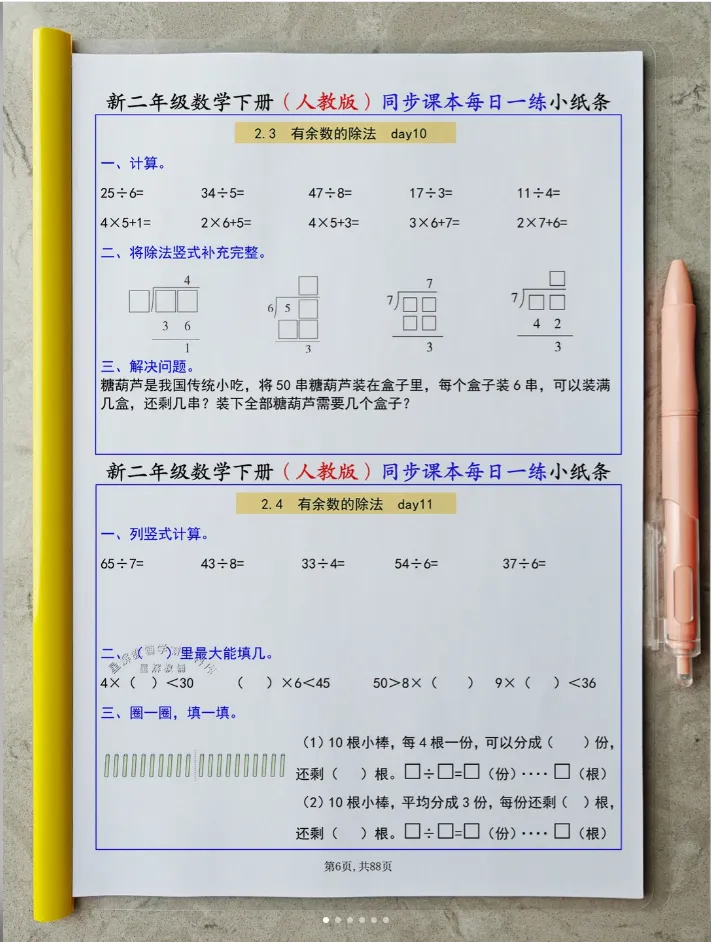 新二年级数学下册（人教版）同步课本每日一练小纸条
2.3 有余数的除法 day10
一、计算。
25÷6= 34÷5= 47÷8= 17÷3= 11÷4=
4×5+1= 2×6+5= 4×5+3= 3×6+7= 2×7+6=
二、将除法竖式补充完整。
4 7
6 5 7 7
3 6 4 2
1 3 3 3
三、解决问题。
糖葫芦是我国传统小吃，将50串糖葫芦装在盒子里，每个盒子装6串，可以装满
几盒，还剩几串？装下全部糖葫芦需要几个盒子？
新二年级数学下册（人教版）同步课本每日一练小纸条
2.4 有余数的除法 day11
一、列竖式计算。
65÷7= 43÷8= 33÷4= 54÷6= 37÷6=
二、（ ）里最大能填几。
4×（ ）<30 （ ）×6<45 50>8×（ ） 9×（ ）<36
三、圈一圈，填一填。
（1）10根小棒，每4根一份，可以分成（ ）份，
还剩（ ）根。□÷□=□（份）····□（根）
（2）10根小棒，平均分成3份，每份还剩（ ）根，
还剩（ ）根。□÷□=□（份）····□（根）
第6页，共88页